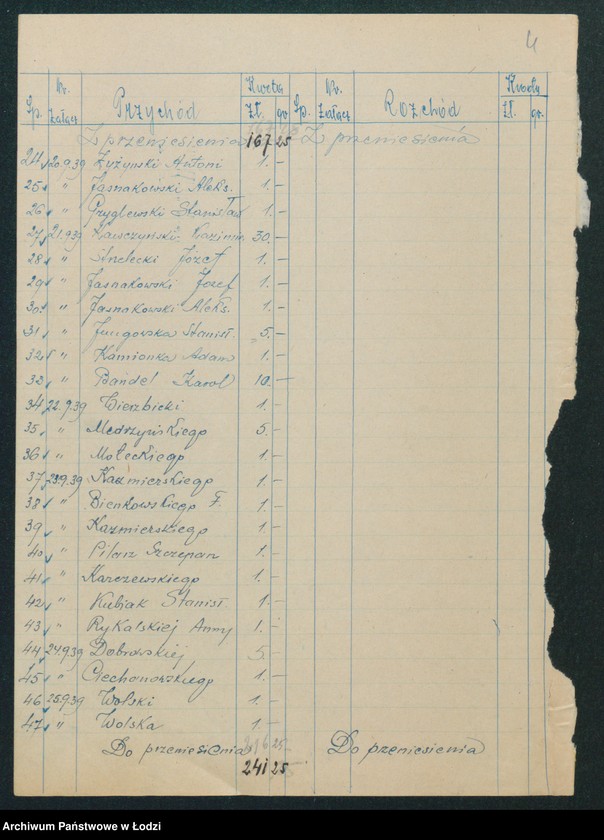 4
Lp. Nr. załącz. Przychód Kwota Zł. gr. Lp. Nr. załącz. Rozchód Kwota Zł. gr.
Z przeniesienia 167 25 Z przeniesienia
24 20.9.39 Zyżyński Antoni 1. —
25 " Jasnakowski Aleks. 1. —
26 " Pryglewski Stanisław 1. —
27 21.9.39 Kazimie. 30. —
28 " Józef 1. —
29 " Jasnakowski Józef 1. —
30 " Jasnakowski Aleks. 1. —
31 " Jungowska Stanisł. 5. —
32 " Kamionka Adam 1. —
32 " Bandel Karol 10. —
34 22.9.39 Cierzbicki 1. —
35 " Mędrzyńskiego 5. —
36 " Małeckiego 1. —
37 23.9.39 Kazmierskiego 1. —
38 " Bienkowskiego F. 1. —
39 " Kazmierskiego 1. —
40 " Pilarz Szczepan 1. —
41 " Karczewskiego 1. —
42 " Kubiak Stanisł. 1. —
43 " Rykalskiej Anny 1. —
44 24.9.39 Dobrowskiej 5. —
45 " Ciechonorskiego 1. —
46 25.9.39 Wolski 1. —
47 " Wolska 1. —
Do przeniesienia 241 25 Do przeniesienia
Archiwum Państwowe w Łodzi